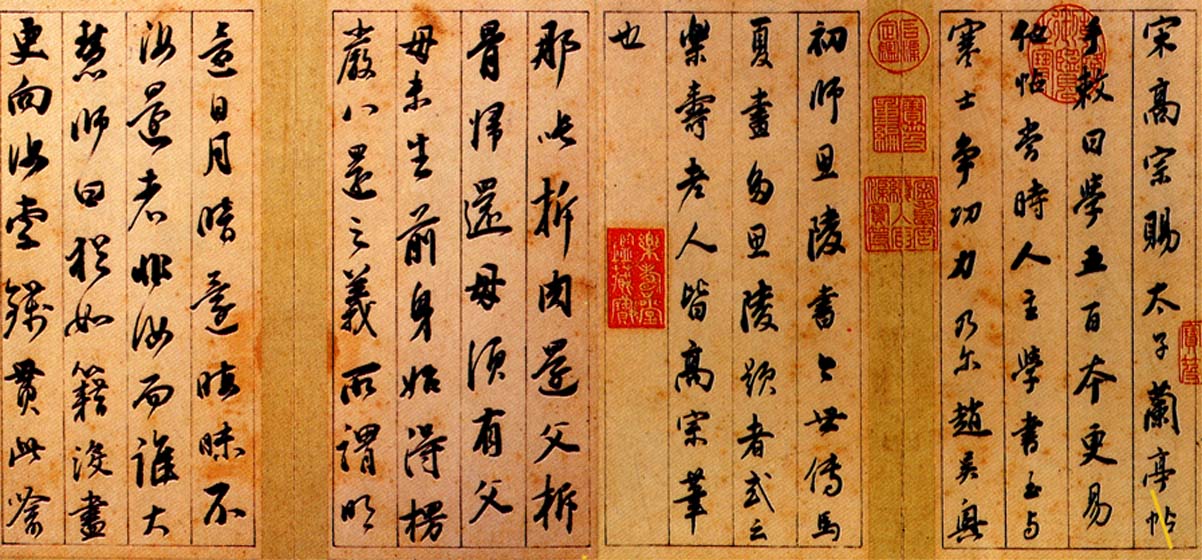 宋高宗賜太子蘭亭帖
手敕曰學五百本更易
他帖當時人主學書至与
寒士争功力乃尔趙吳興
初師思陵書今世傳馬
夏畫多思陵題者或云
樂壽老人皆高宗筆
也
樂壽堂鑑藏寶
那吒析肉還父析
骨歸還母須有父
母未生前身始得楞
嚴八還之義所謂明
還日月暗還晦昧不
汝還者非汝而誰大
慧師曰猶如籍沒盡
更向汝索錢貫此喻